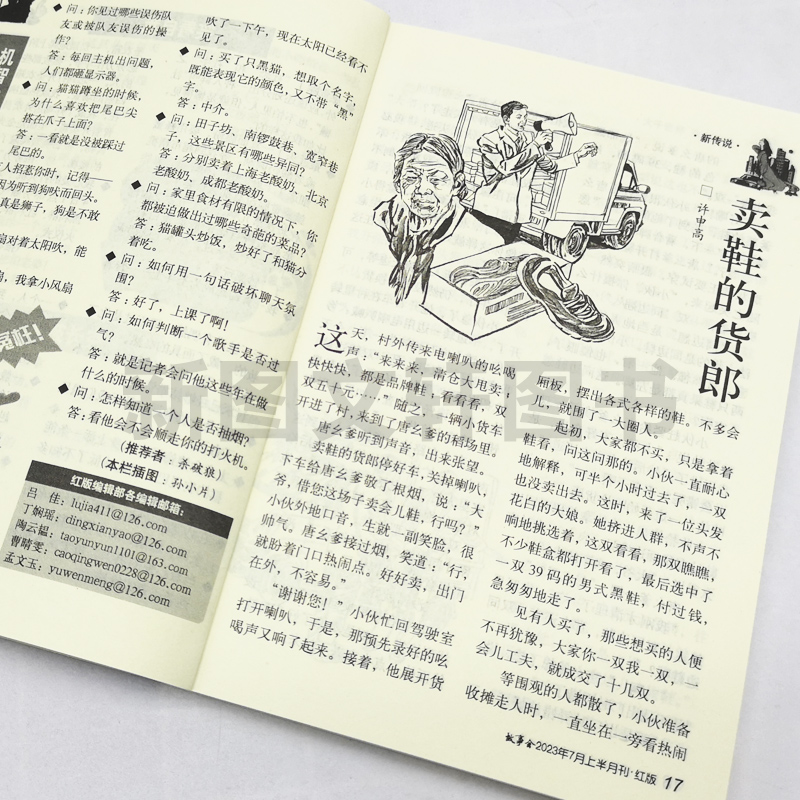 问：你见过哪些误伤队
友或被队友误伤的操
作？
答：每回主机出问题，
人们都砸显示器。
问：猫猫蹲坐的时候，
为什么喜欢把尾巴尖
搭在爪子上面？
答：一看就是没被踩过
尾巴的。
人招惹你时，记得——
因为听到狗吠而回头。
真是狮子，狗是不敢
扇对着太阳吹，能
扇，我拿小风扇
吹了一下午，现在太阳已经看不
见了。
问：买了只黑猫，想取个名字，
既能表现它的颜色，又不带“黑”
字。
答：中介。
问：田子坊、南锣鼓巷、宽窄巷
子，这些景区有哪些异同？
答：分别卖着上海老酸奶、北京
老酸奶、成都老酸奶。
问：家里食材有限的情况下，你
都被迫做出过哪些奇葩的菜品？
答：猫罐头炒饭，炒好了和猫分
着吃。
问：如何用一句话破坏聊天氛
围？
答：好了，上课了啊！
问：如何判断一个歌手是否过
气？
答：就是记者会问他这些年在做
什么的时候。
问：怎样知道一个人是否抽烟？
答：看他会不会顺走你的打火机。
（推荐者：茶破狼）
（本栏插图：孙小片）
红版编辑部各编辑邮箱：
吕 佳：lujia411@126.com
丁娴瑶：dingxianyao@126.com
陶云韫：taoyunyun1101@163.com
曹晴雯：caoqingwen0228@126.com
孟文玉：yuwenmeng@126.com
·新传说·
卖鞋的货郎
□ 许申高
这天，村外传来电喇叭的吆喝
声：“来来来，清仓大甩卖；
快快快，都是品牌鞋；看看看，双
双五十元……”随之，一辆小货车
开进了村，来到了唐幺爹的稻场里。
唐幺爹听到声音，出来张望。
卖鞋的货郎停好车，关掉喇叭，
下车给唐幺爹敬了根烟，说：“大
爷，借您这场子卖会儿鞋，行吗？”
小伙外地口音，生就一副笑脸，很
帅气。唐幺爹接过烟，笑道：“行，
就盼着门口热闹点。好好卖，出门
在外，不容易。”
“谢谢您！”小伙忙回驾驶室
打开喇叭，于是，那预先录好的吆
喝声又响了起来。接着，他展开货
厢板，摆出各式各样的鞋。不多会
儿，就围了一大圈人。
起初，大家都不买，只是拿着
鞋看，问这问那的。小伙一直耐心
地解释，可半个小时过去了，一双
也没卖出去。这时，来了一位头发
花白的大娘。她挤进人群，不声不
响地挑选着，这双看看，那双瞧瞧，
不少鞋盒都打开看了，最后选中了
一双39码的男式黑鞋，付过钱，
急匆匆地走了。
见有人买了，那些想买的人便
不再犹豫，大家你一双我一双，一
会儿工夫，就成交了十几双。
等围观的人都散了，小伙准备
收摊走人时，一直坐在一旁看热闹
故事会2023年7月上半月刊·红版 17
新图文轩图书